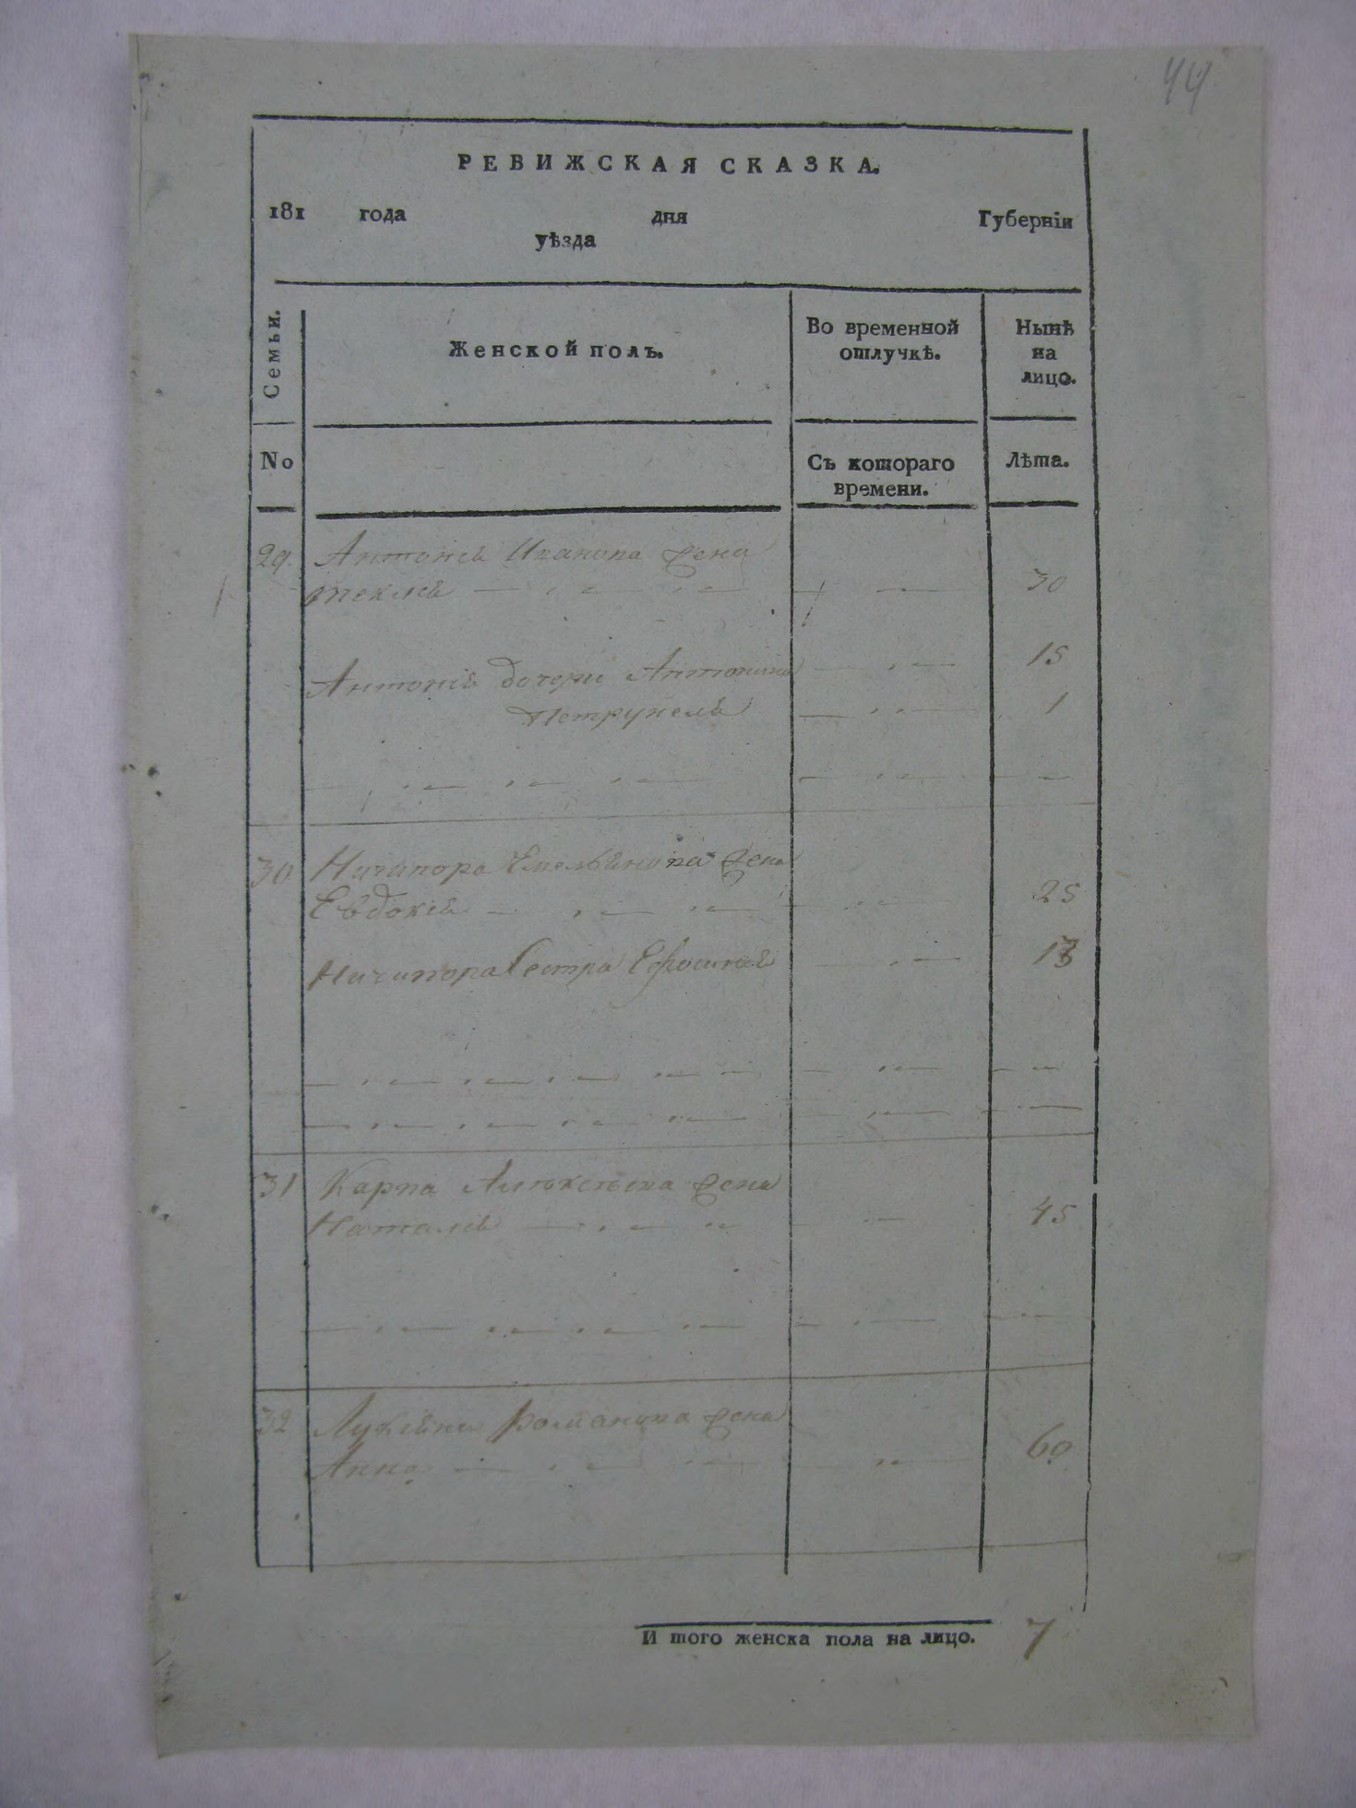 44
РЕВИЖСКАЯ СКАЗКА.
181 года дня Губерніи
уѣзда
Семьи.
Женской полъ.
Во временной
отлучкѣ.
Нынѣ
на
лицо.
No
Съ котораго
времени.
Лѣта.
29. Антонія Иванова жена
Текля 30
Антонія дочери Антонина 15
Петрунеля 1
30 Ничипора Емельянова жена
Евдокія 25
Ничипора Сестра Ефросинія 13
31 Карпа жена
Наталія 45
32 Лукіяна Романова жена
Анна 60
И того женска пола на лицо. 7